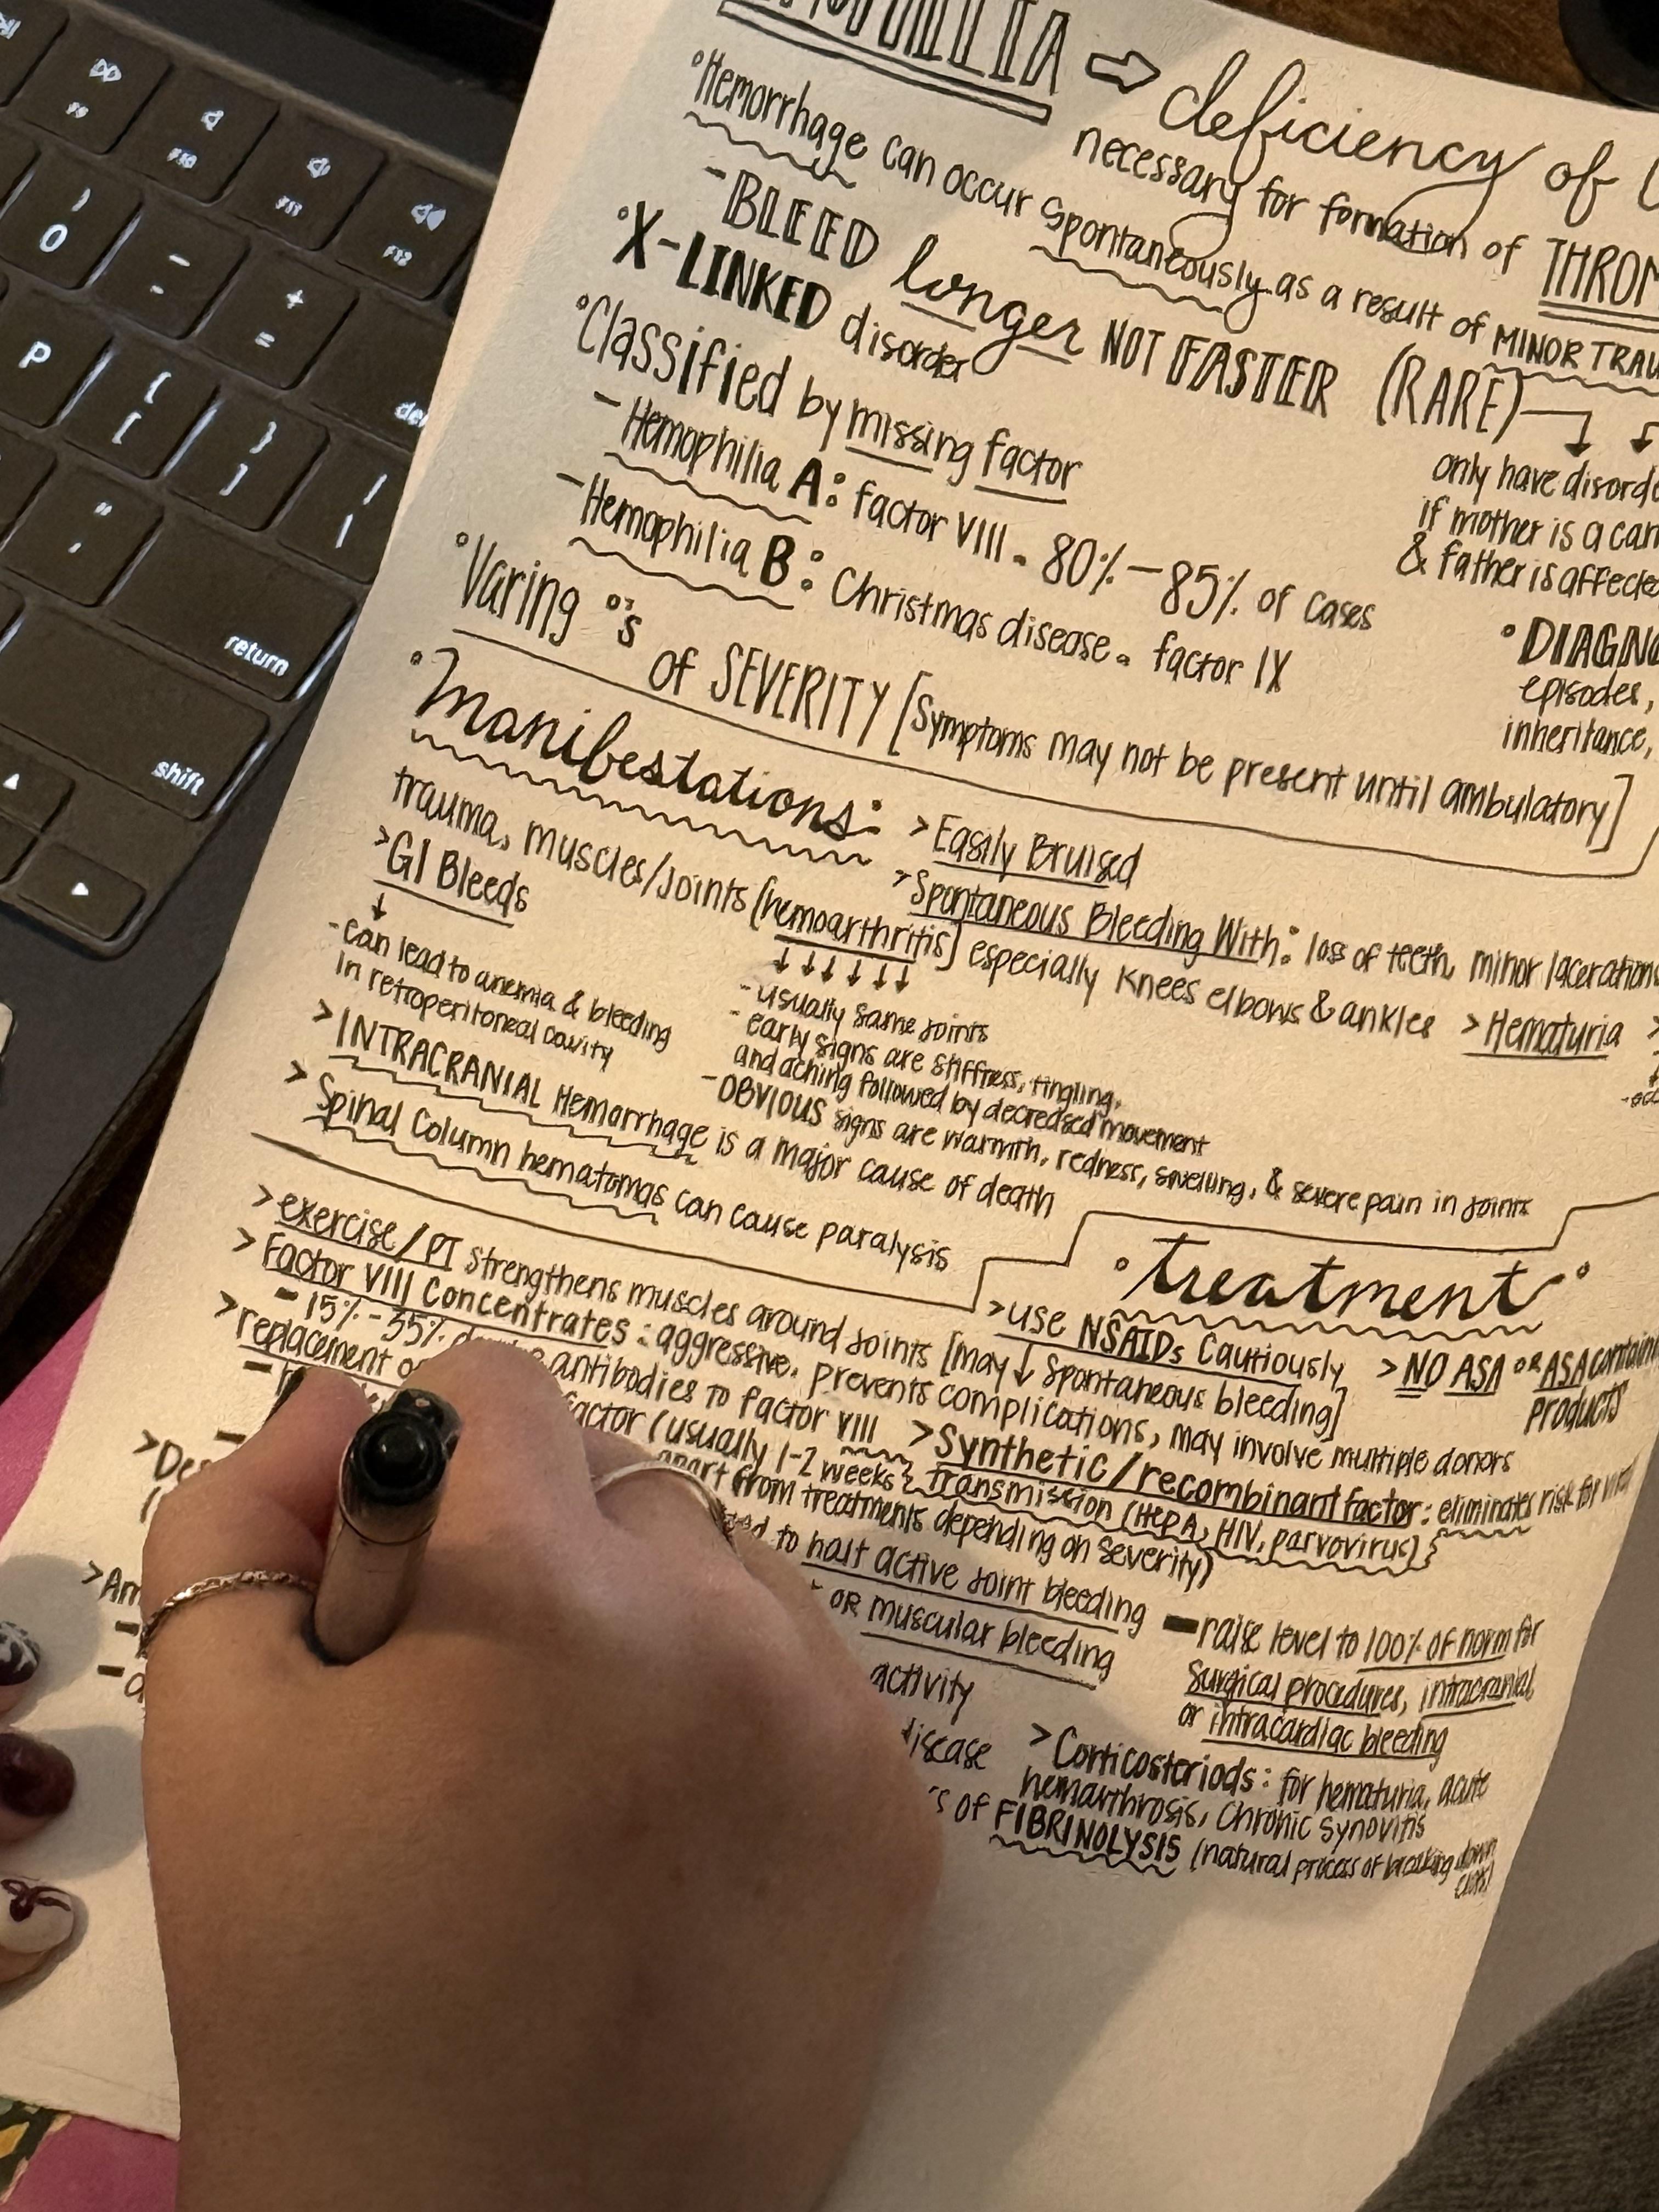 deficiency of
necessary for formation of THROM
°Hemorrhage can occur spontaneously as a result of MINOR TRAU
-BLEED longer NOT FASTER (RARE)
°X-LINKED disorder
only have disorde
if mother is a carr
& father is affecte
°Classified by missing factor
-Hemophilia A: factor VIII. 80%-85% of cases
-Hemophilia B: Christmas disease. factor IX
°DIAGNO
episodes,
inheritance,
°Varing °'s of SEVERITY [Symptoms may not be present until ambulatory]
°Manifestations: >Easily Bruised
>Spontaneous Bleeding With: loss of teeth, minor lacerations
trauma, muscles/joints (hemoarthritis] especially knees elbows & ankles >Hematuria >
>GI Bleeds
-can lead to anemia & bleeding
in retroperitoneal cavity
-usually same joints
-early signs are stiffness, tingling,
and aching followed by decreased movement
-OBVIOUS signs are warmth, redness, swelling, & severe pain in joints
>INTRACRANIAL Hemorrhage is a major cause of death
>Spinal Column hematomas can cause paralysis
°treatment°
>use NSAIDs Cautiously >NO ASA OR ASA containin
products
>exercise/PT strengthens muscles around joints [may ↓ spontaneous bleeding]
>Factor VIII Concentrates: aggressive, prevents complications, may involve multiple donors
-15%-35% antibodies to factor VIII >Synthetic/recombinant factor: eliminates risk for
{transmission (Hep A, HIV, parvovirus)}
>replacement factor (usually 1-2 weeks
apart from treatments depending on severity)
to halt active joint bleeding
OR muscular bleeding
-raise level to 100% of norm for
surgical procedures, intracranial
or intracardiac bleeding
activity
disease >Corticosteriods: for hematuria, acute
hemarthrosis, chronic synovitis
of FIBRINOLYSIS (natural process of breaking down
clots)
O
-
-
+
=
P
{
[
}
]
|
"
,
return
shift
F9
F10
F11
F12